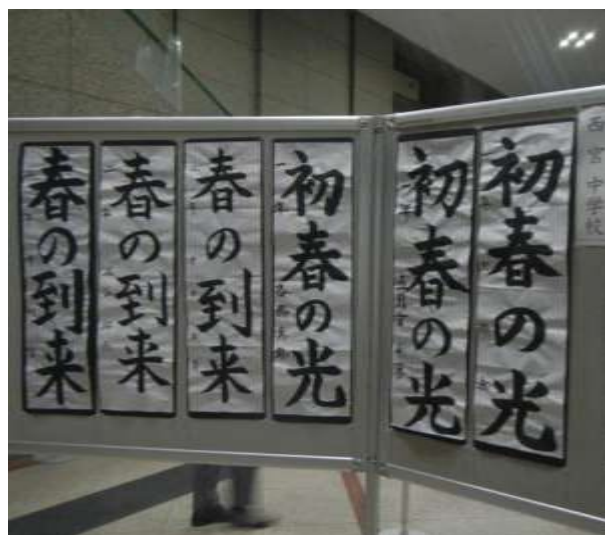 西宮中学校
初春の光
初春の光
初春の光
春の到来
春の到来
春の到来